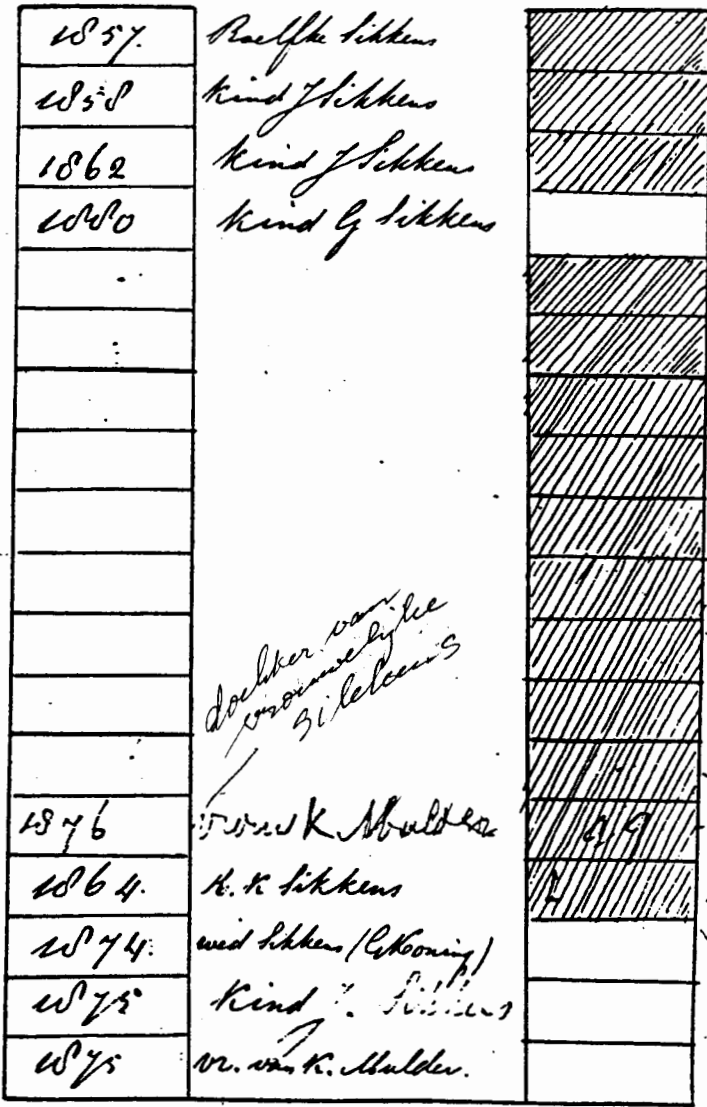 1857. Roelfke Sikkens
1858 Kind J Sikkens
1862 Kind J Sikkens
1880 Kind G Sikkens
dochter van
vrouwelijke
Sikkens
1876 vrouw K Mulder
1864. K. K Sikkens
1874. wed Sikkens (G Koning)
1875 Kind J. Sikkens
1875 vr. van K. Mulder.